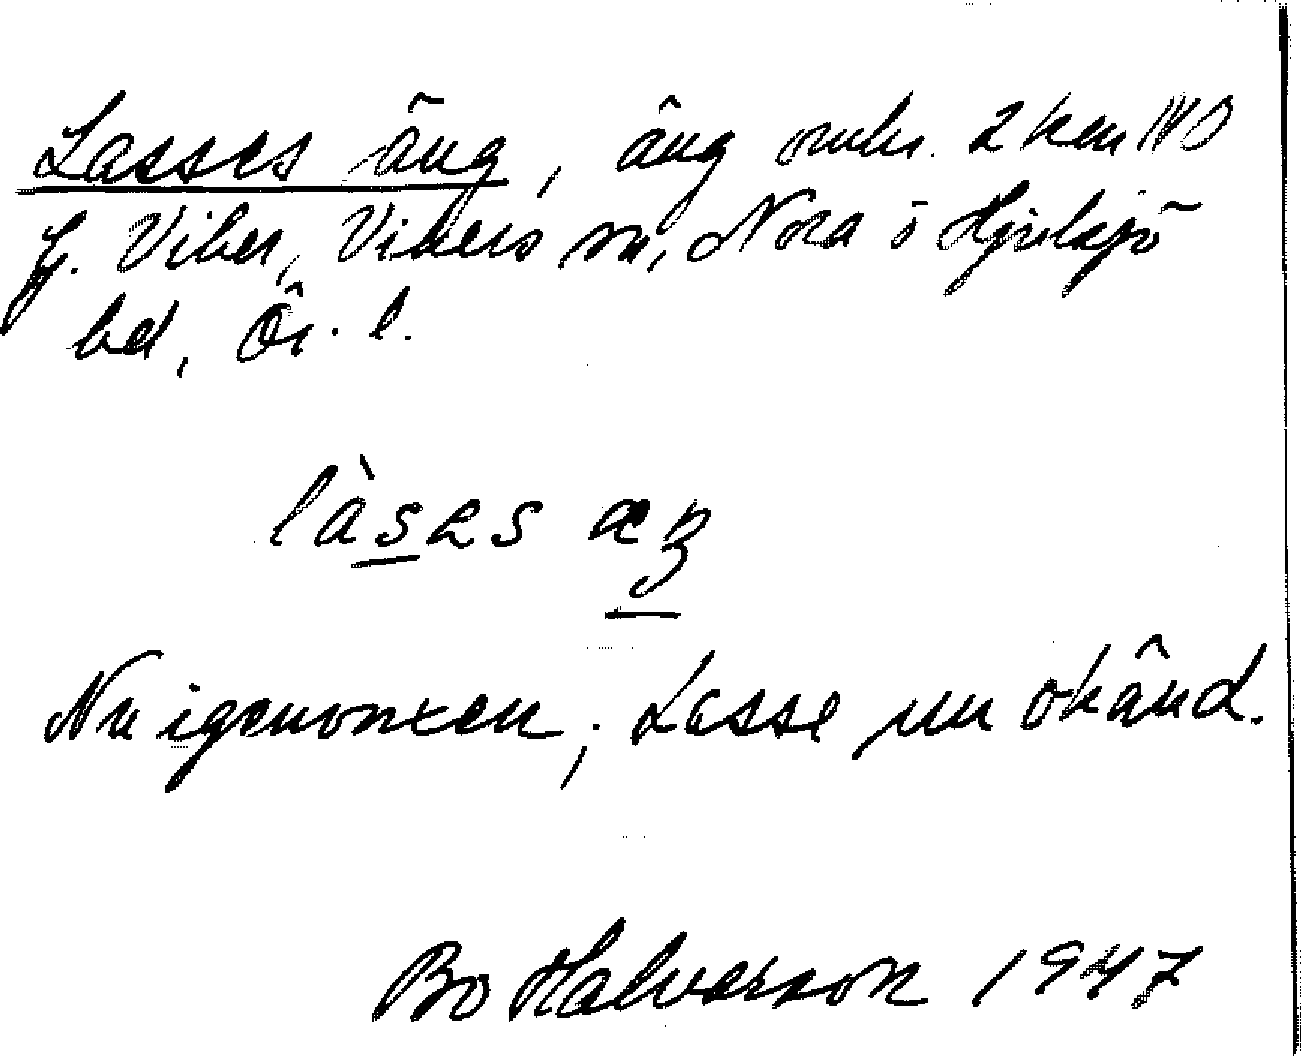 Lasses äng, äng omkr. 2 km NO
f. Viker, Vikers sn, Nora o Hjulsjö
bd, Ör. l.
làsɛs æŋ
Nu igenvuxen; Lasse nu okänd.
Bo Halvarson 1947